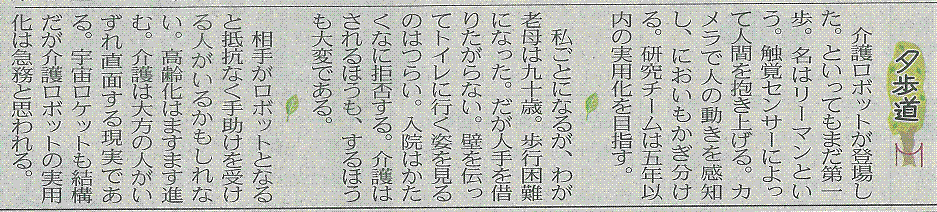 夕歩道
介護ロボットが登場し
た。といってもまだ第一
歩。名はリーマンとい
う。触覚センサーによっ
て人間を抱き上げる。カ
メラで人の動きを感知
し、においもかぎ分け
る。研究チームは五年以
内の実用化を目指す。
私ごとになるが、わが
老母は九十歳。歩行困難
になった。だが人手を借
りたがらない。壁を伝っ
てトイレに行く姿を見る
のはつらい。入院はかた
くなに拒否する。介護は
されるほうも、するほう
も大変である。
相手がロボットとなる
と抵抗なく手助けを受け
る人がいるかもしれな
い。高齢化はますます進
む。介護は大方の人がい
ずれ直面する現実であ
る。宇宙ロケットも結構
だが介護ロボットの実用
化は急務と思われる。